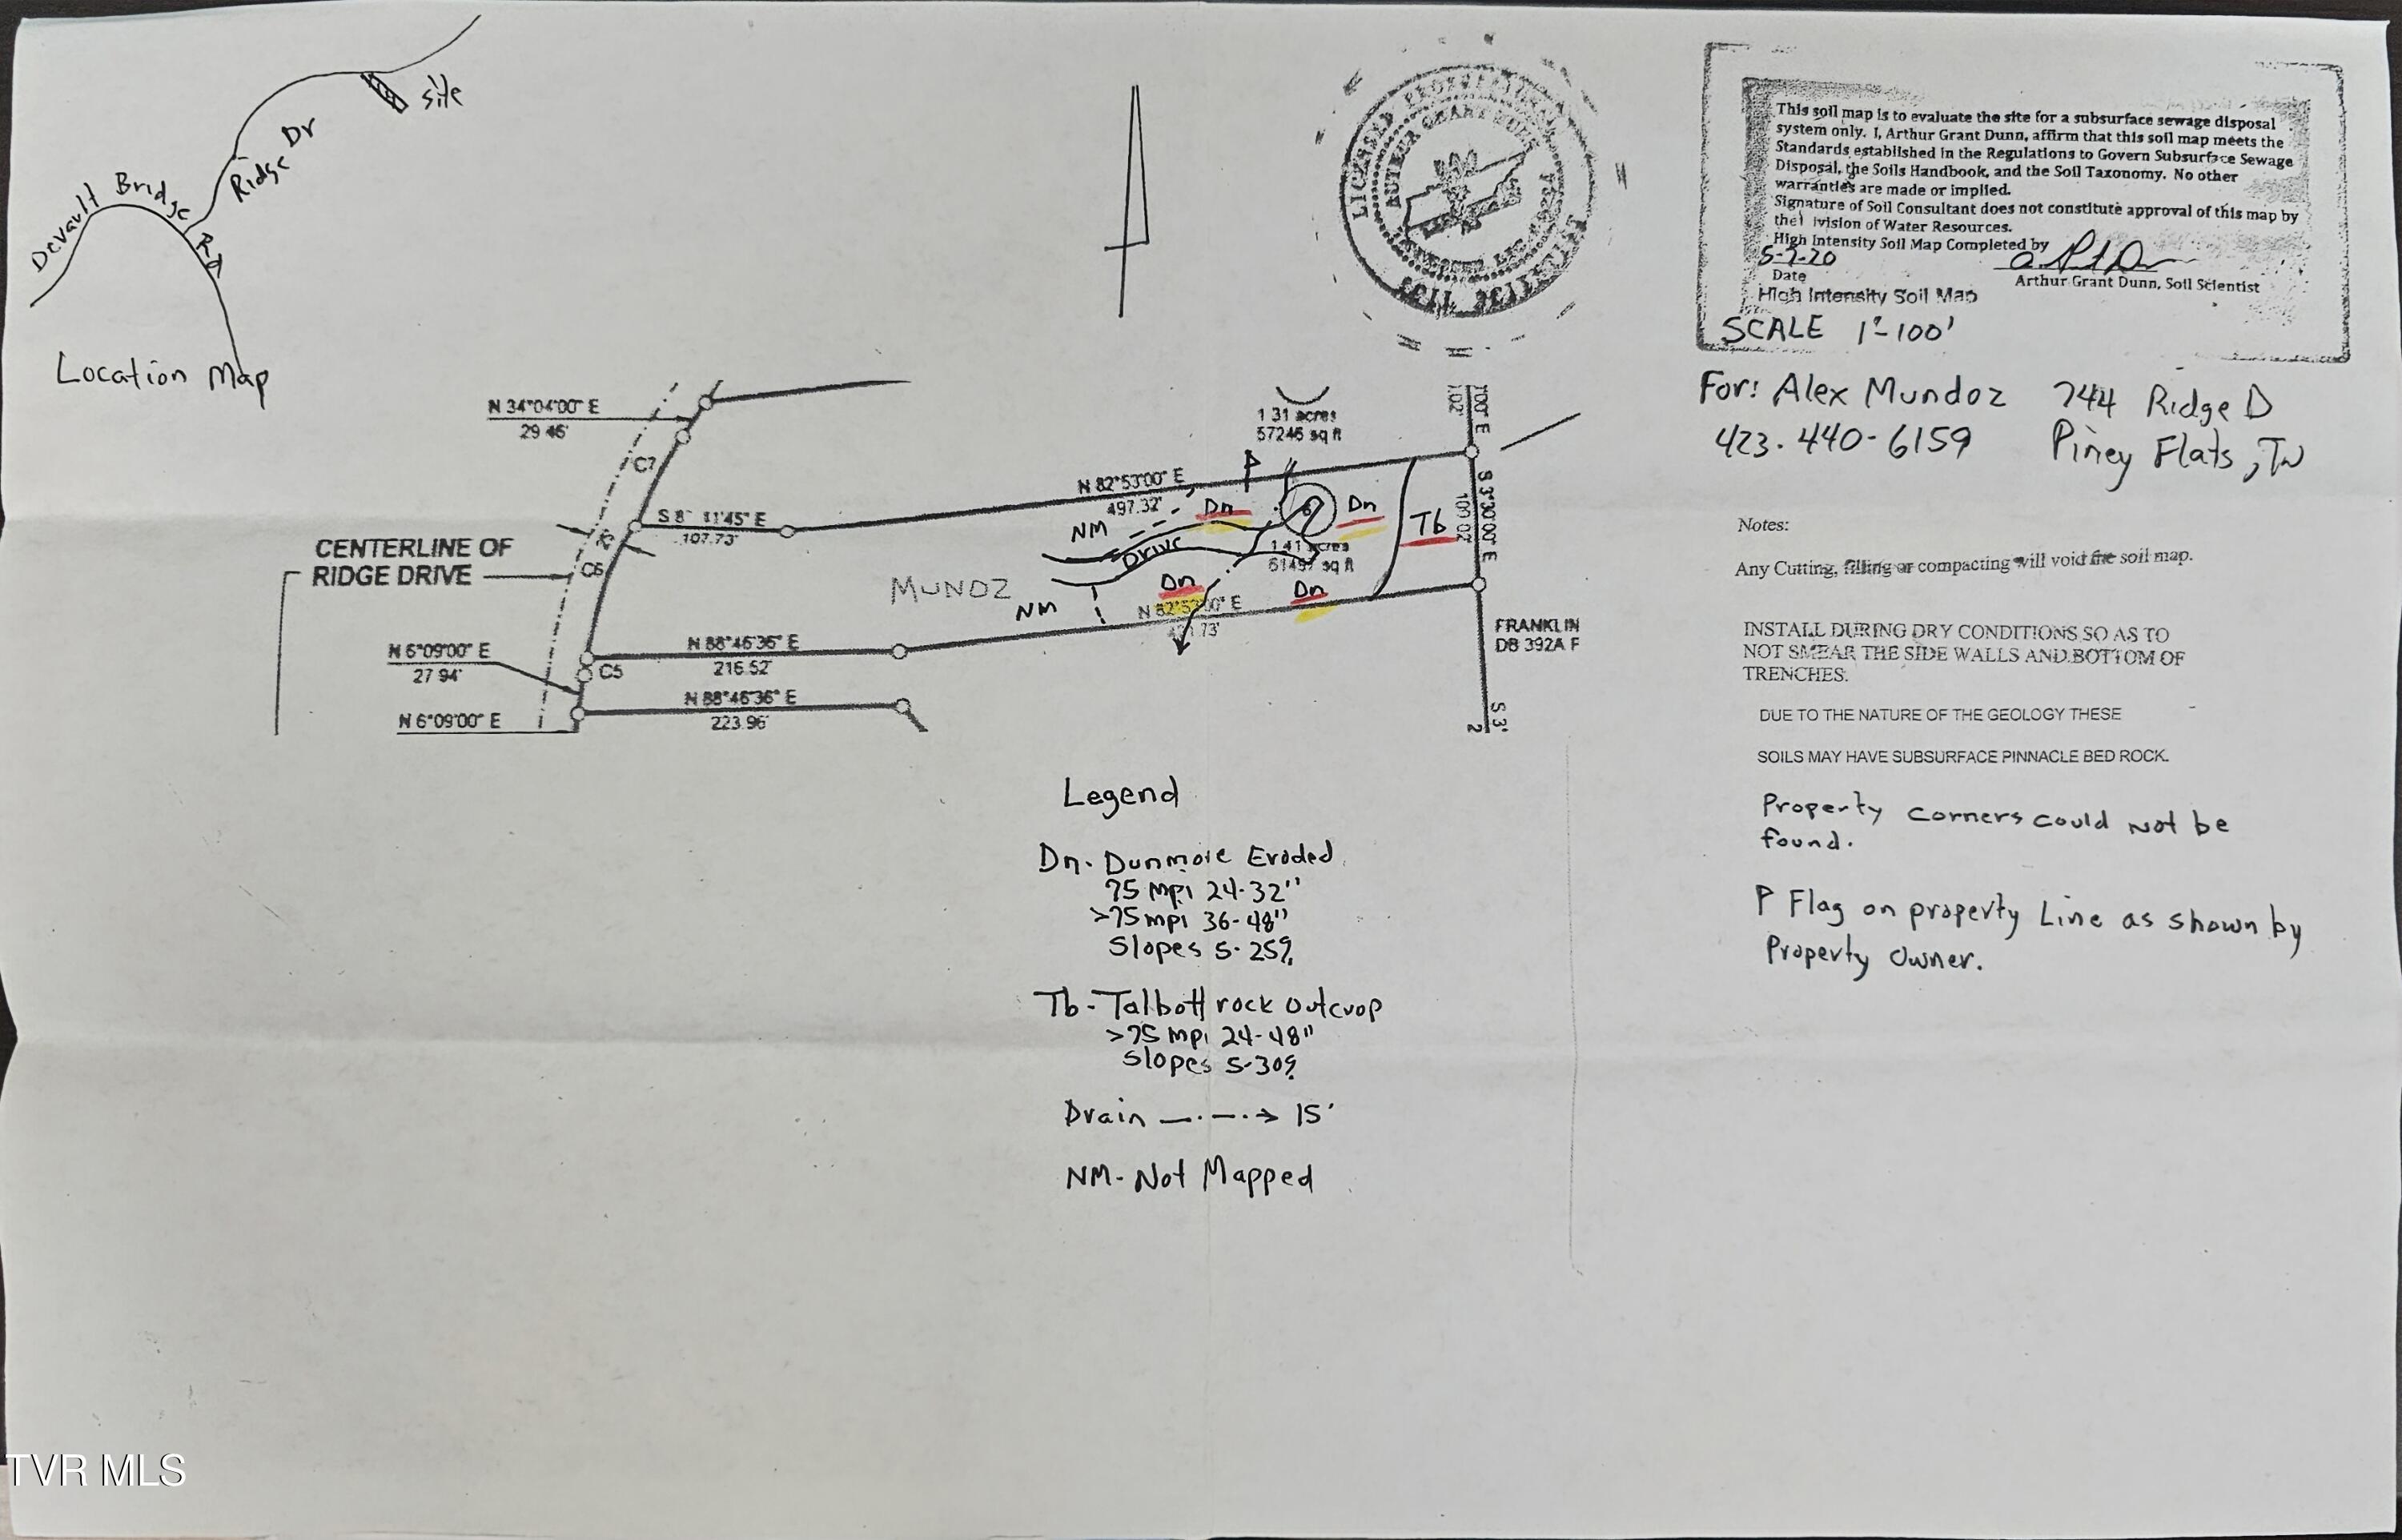 site
Ridge Dr
Devault Bridge Rd
Location Map
LICENSED PROFESSIONAL
SOIL SCIENTIST
This soil map is to evaluate the site for a subsurface sewage disposal
system only. I, Arthur Grant Dunn, affirm that this soil map meets the
Standards established in the Regulations to Govern Subsurface Sewage
Disposal, the Soils Handbook, and the Soil Taxonomy. No other
warranties are made or implied.
Signature of Soil Consultant does not constitute approval of this map by
the ivision of Water Resources.
High Intensity Soil Map Completed by
5-7-20
Date
Arthur Grant Dunn, Soil Scientist
High Intensity Soil Map
SCALE 1"-100'
For: Alex Mundoz 744 Ridge D
423.440-6159 Piney Flats, TN
Notes:
Any Cutting, filling or compacting will void the soil map.
INSTALL DURING DRY CONDITIONS SO AS TO
NOT SMEAR THE SIDE WALLS AND BOTTOM OF
TRENCHES.
DUE TO THE NATURE OF THE GEOLOGY THESE
SOILS MAY HAVE SUBSURFACE PINNACLE BED ROCK.
Property corners could not be
found.
P Flag on property Line as shown by
Property Owner.
N 34°04'00" E
29.46'
C7
1.31 acres
57246 sq ft
N 82°53'00" E
497.32'
P
Dn
Dn
Tb
S 3°30'00" E
100.02'
NM
Drive
6
1.41 acres
61497 sq ft
107.73'
CENTERLINE OF
RIDGE DRIVE
C6
MUNOZ
NM
Dn
Dn
N 82°53'00" E
N 6°09'00" E
27.94'
C5
N 88°46'36" E
216.52'
N 88°46'36" E
223.96'
N 6°09'00" E
FRANKLIN
DB 392A F
S 3°
2
Legend
Dn- Dunmore Eroded
75 mpi 24-32"
>75 mpi 36-48"
Slopes 5-25%
Tb-Talbott rock outcrop
>75 mpi 24-48"
Slopes 5-30%
Drain 15'
NM- Not Mapped
TVR MLS